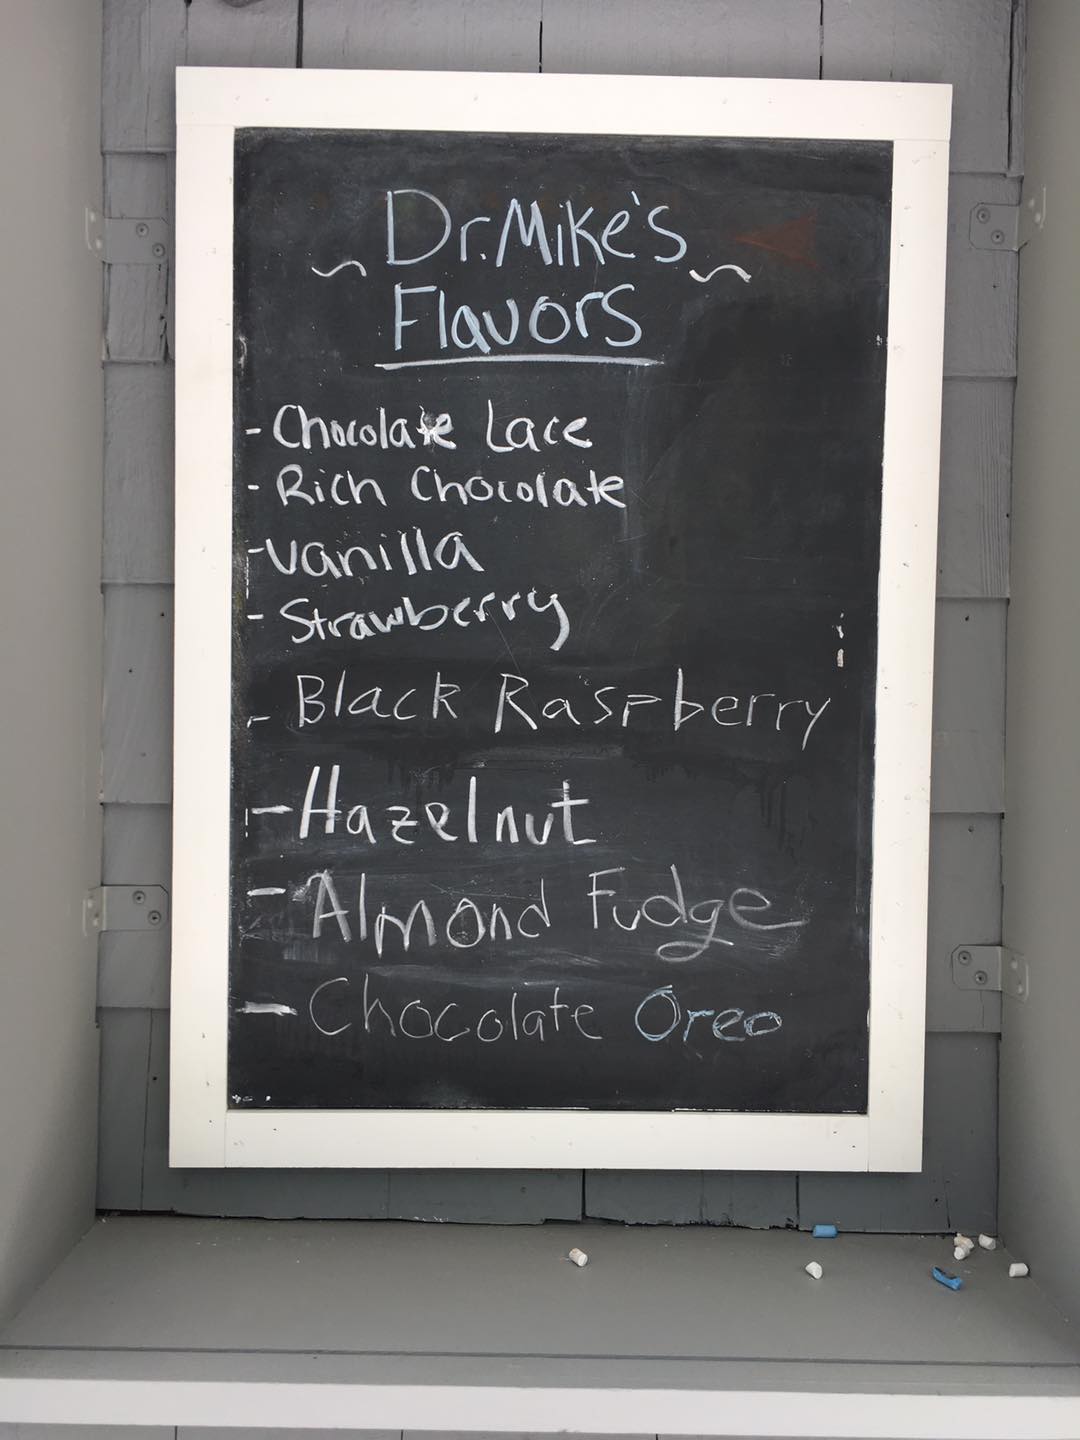 Dr. Mike's
~ Flavors ~
- Chocolate Lace
- Rich Chocolate
- Vanilla
- Strawberry
- Black Raspberry
- Hazelnut
- Almond Fudge
- Chocolate Oreo